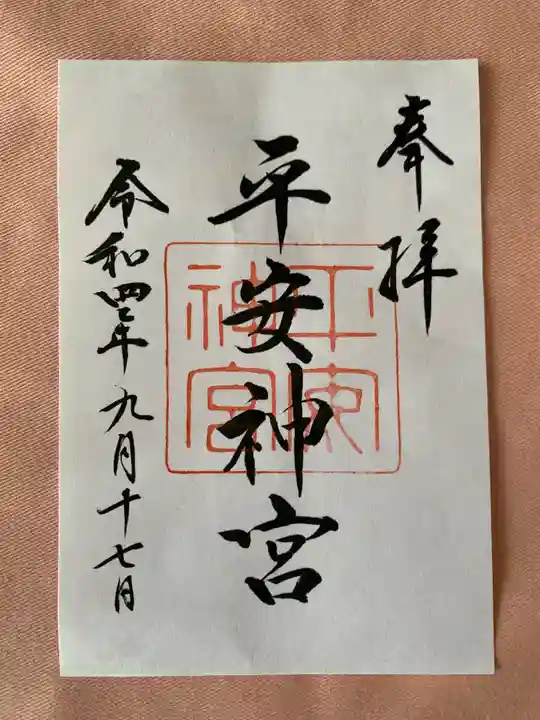 奉拝
平安神宮
平安神宮
令和四年九月十七日